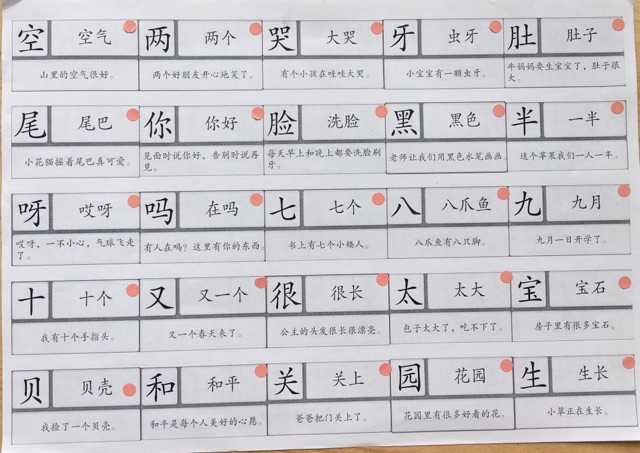 空 空气 两 两个 哭 大哭 牙 虫牙 肚 肚子
山里的空气很好。 两个好朋友开心地笑了。 有个小孩在哇哇大哭。 小宝宝有一颗虫牙。 牛妈妈要生宝宝了，肚子很大。
尾 尾巴 你 你好 脸 洗脸 黑 黑色 半 一半
小花猫摇着尾巴真可爱。 见面时说你好，告别时说再见。 每天早上和晚上都要洗脸刷牙。 老师让我们用黑色水笔画画。 这个苹果我们一人一半。
呀 哎呀 吗 在吗 七 七个 八 八爪鱼 九 九月
哎呀，一不小心，气球飞走了。 有人在吗？这里有你的东西。 书上有七个小矮人。 八爪鱼有八只脚。 九月一日开学了。
十 十个 又 又一个 很 很长 太 太大 宝 宝石
我有十个手指头。 又一个春天来了。 公主的头发很长很漂亮。 包子太大了，吃不下了。 房子里有很多宝石。
贝 贝壳 和 和平 关 关上 园 花园 生 生长
我捡了一个贝壳。 和平是每个人美好的心愿。 爸爸把门关上了。 花园里有很多好看的花。 小草正在生长。